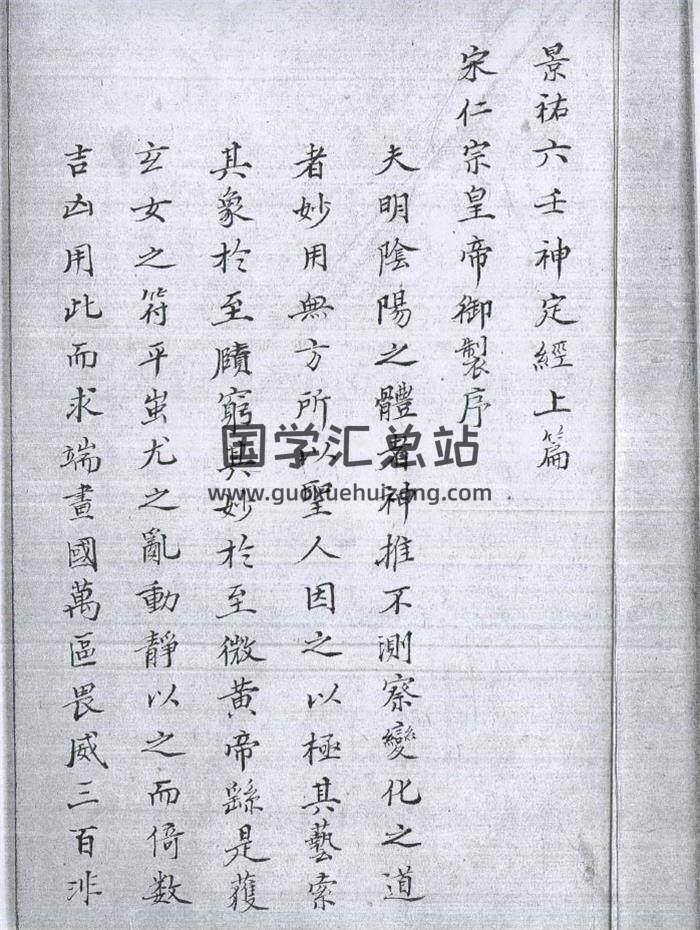 景祐六壬神定經上篇
宋仁宗皇帝御製序
夫明陰陽之體者神推不測察變化之道
者妙用無方所以聖人因之以極其藝索
其象於至賾窮其妙於至微黃帝繇是蒦
玄女之符平蚩尤之亂動靜以之而倚數
吉凶用此而求端畫國萬區畏威三百
国学汇总站
www.guoxuehuizong.com